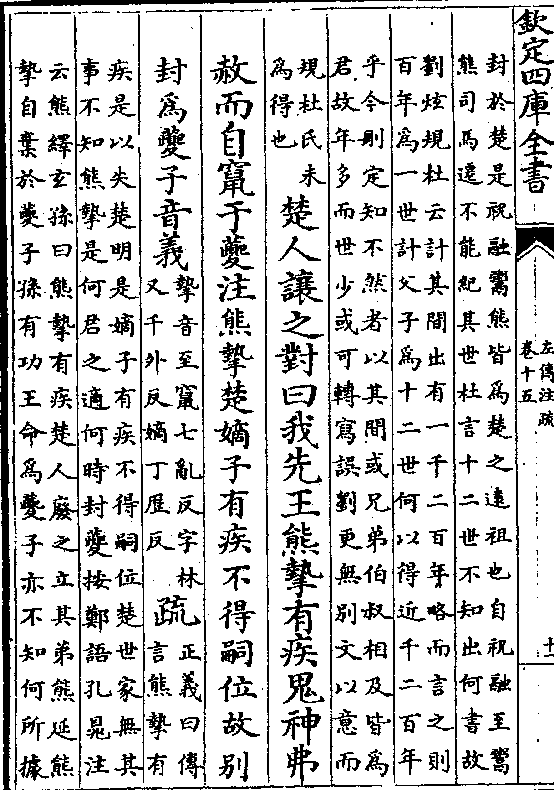 欽定四庫全書
左傳注疏
卷十五
十
封於楚是祝融鬻熊皆為楚之遠祖也自祝融至鬻
熊司馬遷不能紀其世杜言十二世不知出何書故
劉炫規杜云計其間出有一千二百年略而言之則
百年為一世計父子為十二世何以得近千二百年
乎今刪定知不然者以其間或兄弟伯叔相及皆為
君故年多而世少或可轉寫誤劉更無別文以意而
規杜氏未
為得也
楚人讓之對曰我先王熊摯有疾鬼神弗
赦而自竄于夔注熊摯楚嫡子有疾不得嗣位故別
封為夔子音義
摯音至竄七亂反字林
又千外反嫡丁歷反
疏
正義曰傳
言熊摯有
疾是以失楚明是嫡子有疾不得嗣位楚世家無其
事不知熊摯是何君之適何時封夔按鄭語孔晁注
云熊繹玄孫曰熊摯有疾楚人廢之立其弟熊延熊
摯自棄於夔子孫有功王命為夔子亦不知何所據